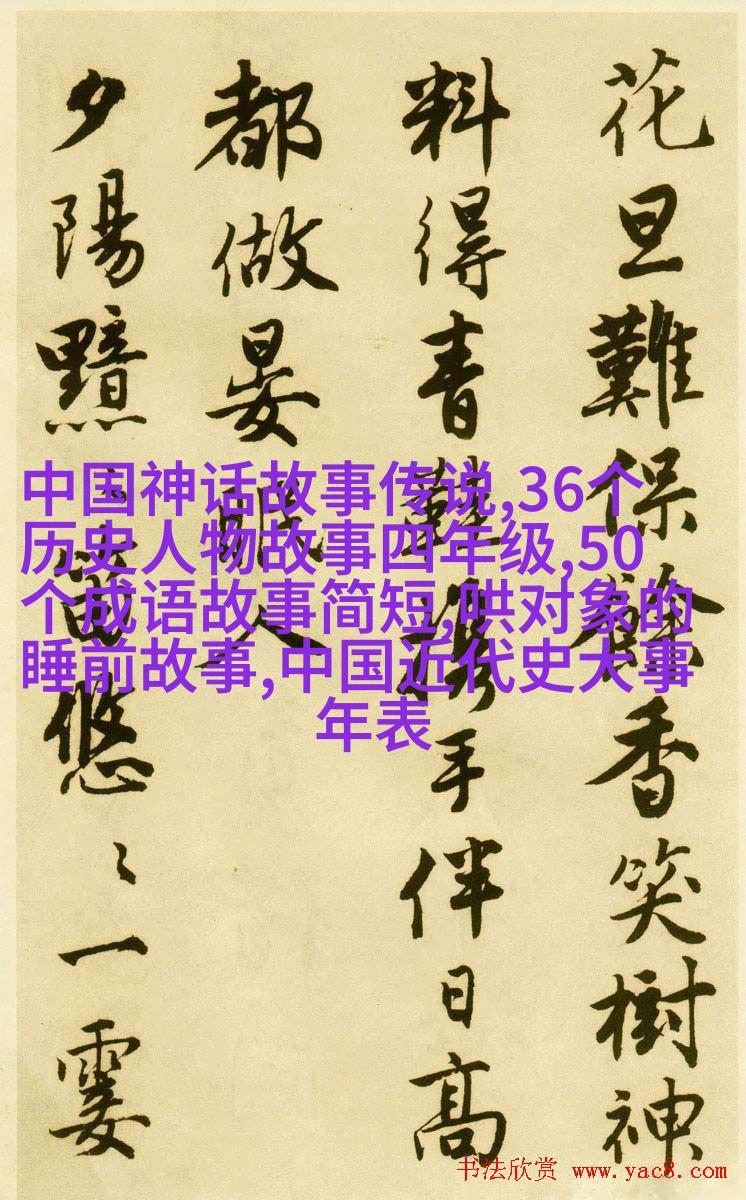 花旦難保餘香笑樹神
料得青鞋攜手伴日高
都做晏眠人
夕陽黯悠〻一霎
中国神话故事传说,36个
历史人物故事四年级,50
个成语故事简短,哄对象的
睡前故事,中国近代史大事
年表
书法欣赏 www.yac8.com